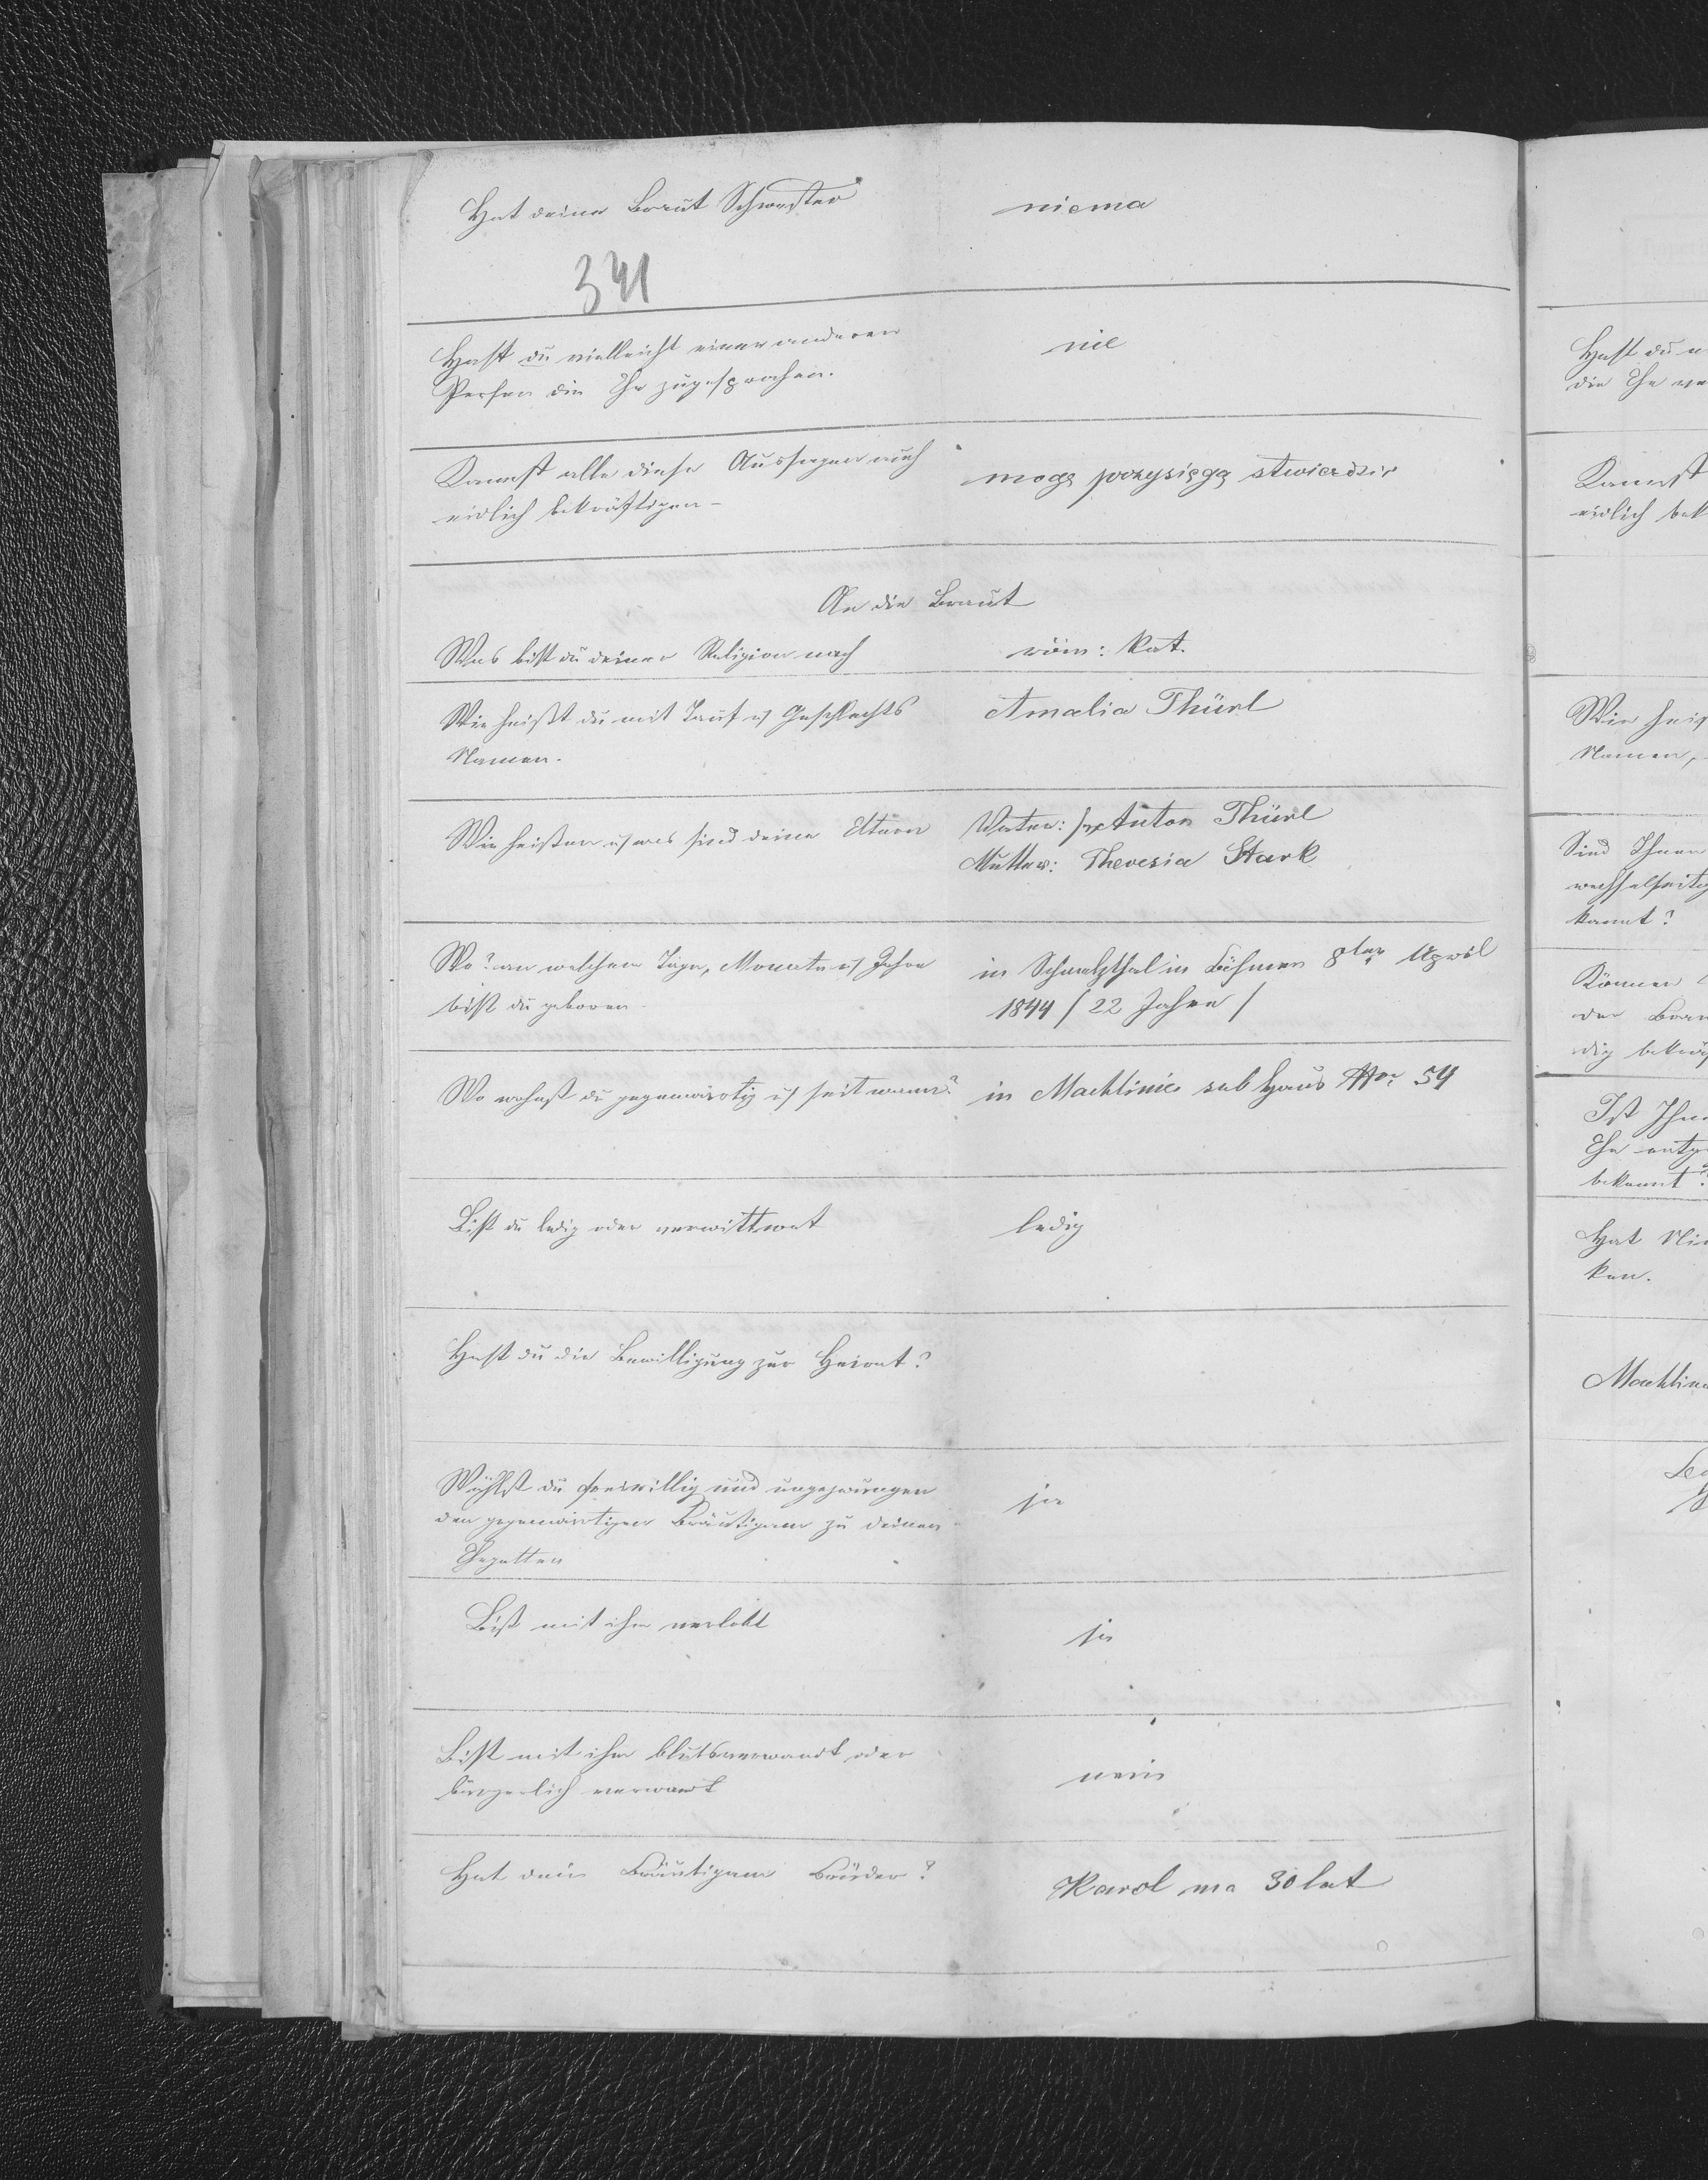 Hat deine Braut Schwester
niema
341
Hast du vielleicht einer anderen
Person die Ehe zugesprochen.
nie
Kannst alle diese Aussagen auch
eidlich bekräftigen -
mogę przysięgą stwierdzić
An die Braut
Was bist du deiner Religion nach
röm: kat.
Wie heißt du mit Tauf u Geschlechts
Namen.
Amalia Thürl
Wie heißen u was sind deine Eltern
Vater: Anton Thürl
Mutter: Theresia Stark
Wo? an welchem Tage, Monate u Jahre
bist du geboren
in Schmelzthal in Böhmen 8ten April
1844 / 22 Jahre /
Wo wohnst du gegenwärtig u seit wann?
in Machliniec sub Haus Nro 54
Bist du ledig oder verwittwet
ledig
Hast du die Bewilligung zur Heirat?
Wählst du freiwillig und ungezwungen
den gegenwärtigen Bräutigam zu deinen
Ehegatten
ja
Bist mit ihm verlobt
ja
Bist mit ihm blutsverwandt oder
bürgerlich verwandt
nein
Hat dein Bräutigam Brüder?
Karol ma 30 lat
Hast du
die Ehe
Kannst
eidlich bek
Wie heiß
Namen,
Sind Ihnen
wechselseitig
kannt?
Können
der Bra
dig bekräf
Ist Ihne
Ehe entge
bekannt?
Hat Nie
ken.
Machlin